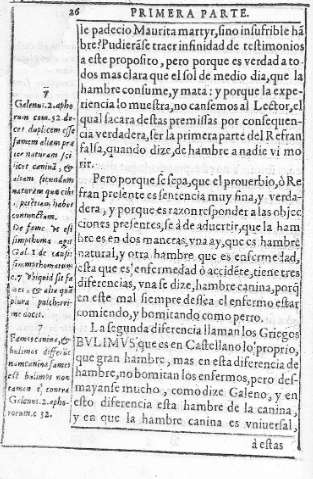 26 PRIMERA PARTE.
le padecio Maurita martyr, sino insufrible hã
bre? Pudieráse traer infinidad de testimonios
a este proposito, pero porque es verdad a to
dos mas clara que el sol de medio dia, que la
hambre consume, y mata: y porque la expe-
riencia lo muestra, no cansemos al Lector, el
qual sacara destas premissas por consequen-
cia verdadera, ser la primera parte del Refran
falsa, quando dize, de hambre a nadie vi mo
rir.
Pero porque se sepa, que el prouerbio, ò Re
fran presente es sentencia muy fina, y verda-
dera, y porque es razon responder a las objec
ciones presentes, se à de aduertir, que la ham
bre es en dos maneras, vna ay, que es hambre
natural, y otra hambre que es enfermedad,
esta que es enfermedad ò accidẽte, tiene tres
diferencias, vna se dize, hambre canina, porq̃
en este mal siempre dessea el enfermo estar
comiendo, y bomitando como perro.
La segunda diferencia llaman los Griegos
BVLIMVS, que es en Castellano lo proprio,
que gran hambre, mas en esta diferencia de
hambre, no bomitan los enfermos, pero des-
mayanse mucho, como dize Galeno, y en
esto diferencia esta hambre de la canina,
y en que la hambre canina es vniuersal,
à estas
Galenus. 2. apho
rum com. 32 do-
cet duplicem esse
famem aliam præ
ter naturam sci
licet caninã, &
aliam secundum
naturam quæ cibi
De fame vt est
simpthoma agit
Gal. 1. de
7
Fames canina, &
bulimos
num canina fames
est bulimos non
tamen è contra
Galenus. 2. apho-
rorum. c. 32.